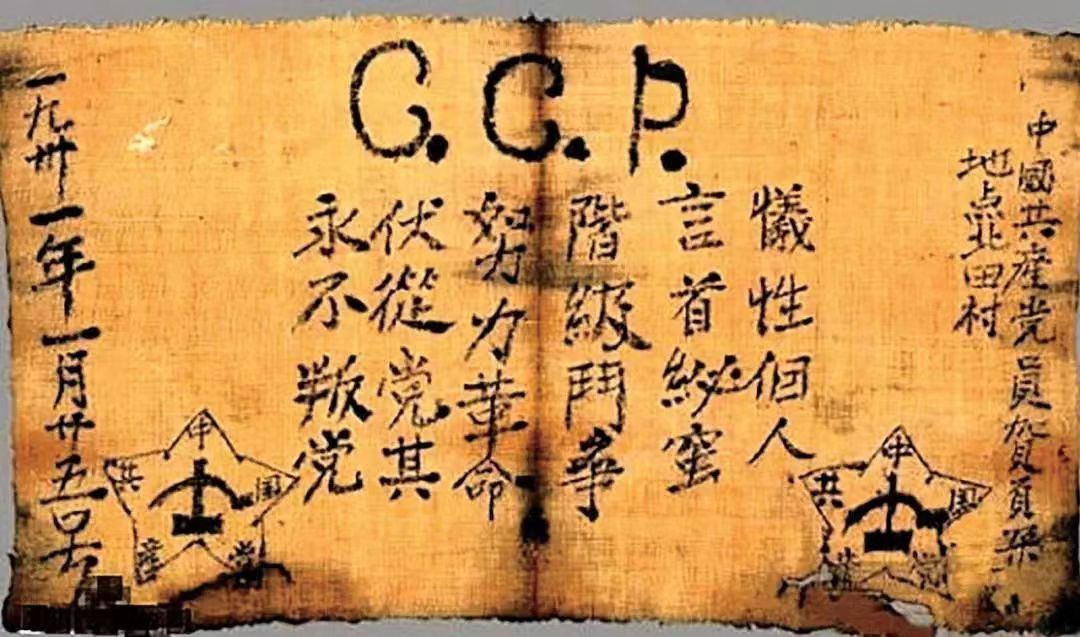 C.C.P.
中國共産党員賀頁朵
地点北田村
犠性個人
言首秘蜜
階級鬥争
努力革命
伏從党其
永不叛党
一九卅一年一月廿五号
中国共産党
中国共産党